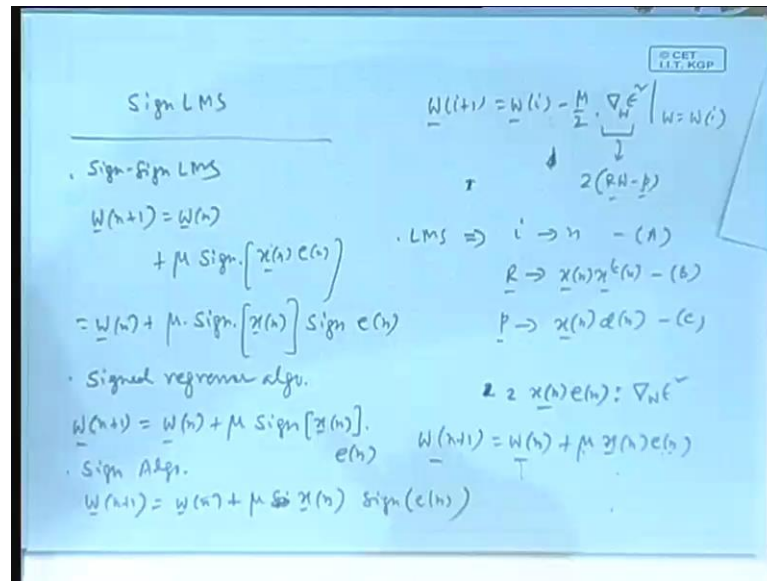 © CET
I.I.T. KGP
Sign LMS
. Sign-Sign LMS
W(n+1) = W(n)
+ μ Sign.[x(n) e(n)]
= W(n) + μ. Sign.[x(n)] Sign e(n)
. Signed regressor algo.
W(n+1) = W(n) + μ Sign[x(n)].
e(n)
. Sign Algo.
W(n+1) = W(n) + μ x(n) Sign(e(n))
W(i+1) = W(i) - μ/2 . ∇_W ε² | W = W(i)
↓
2(RW-p)
. LMS ⇒ i → n - (A)
R → x(n) x^t(n) - (B)
p → x(n) d(n) - (C)
2 x(n) e(n) : ∇_W ε²
W(n+1) = W(n) + μ x(n) e(n)